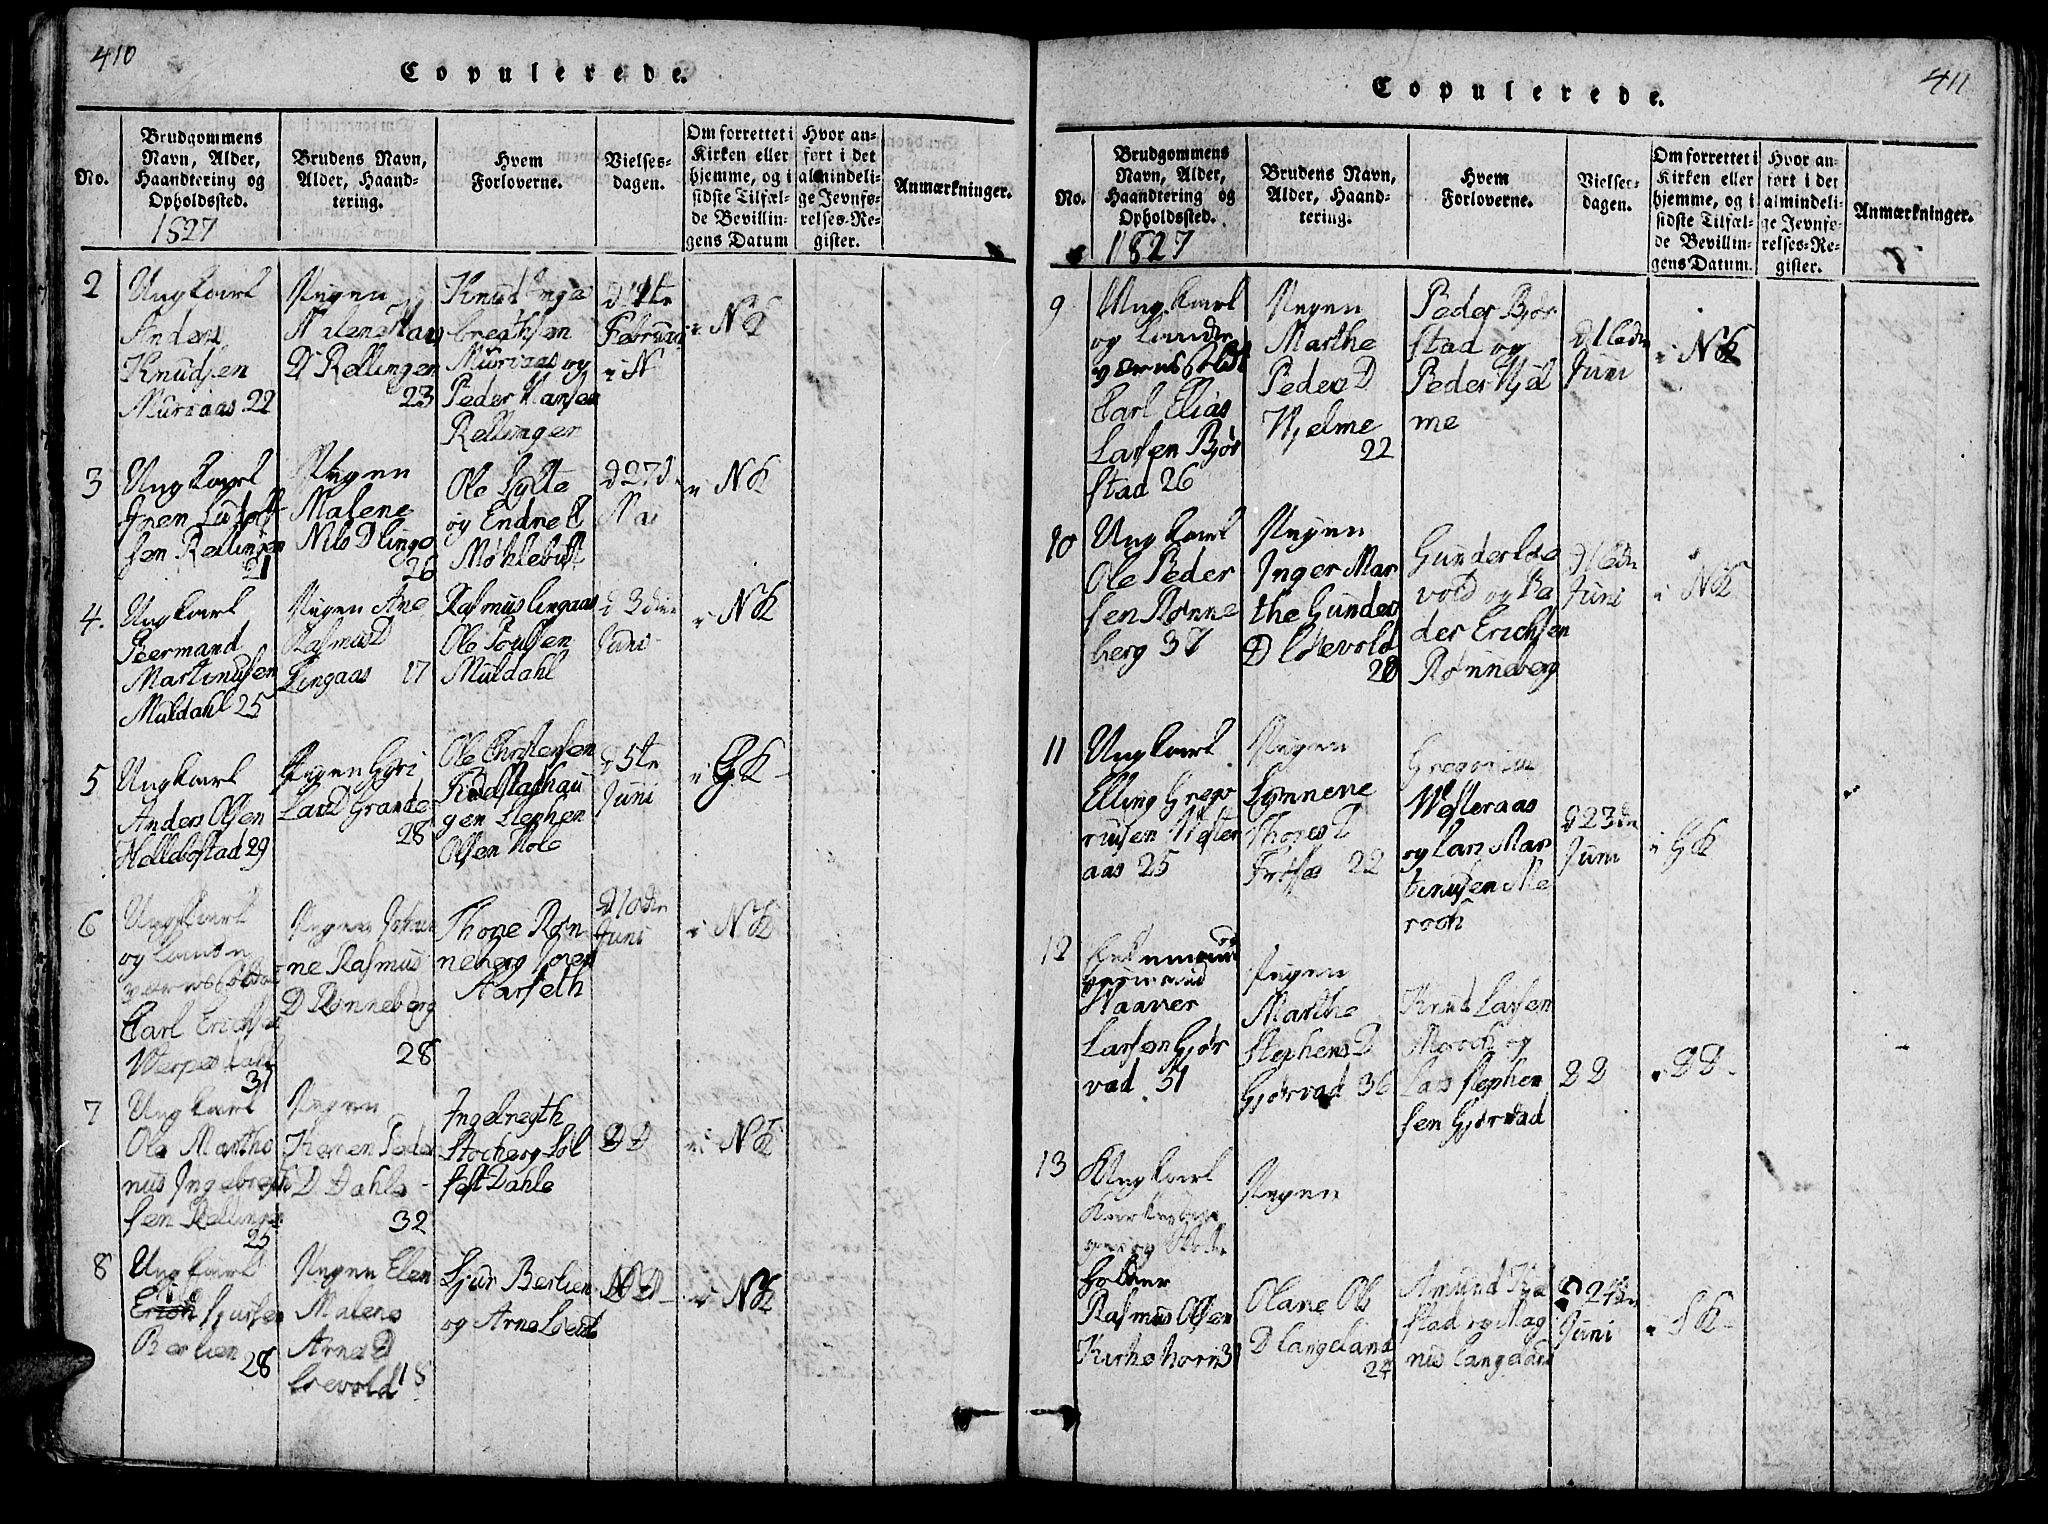 410
Copulerede.
No.
Brudgommens
Navn, Alder,
Haandtering og
Opholdssted.
1827
Brudens Navn,
Alder, Haand-
tering.
Hvem
Forloverne.
Vielses-
dagen.
Om forrettet i
Kirken eller
hjemme, og i
sidste Tilfæl-
de Bevillin-
gens Datum
Hvor an-
ført i det
almindeli-
ge Jevnfø-
relses-Re-
gister.
Anmærkninger.
2
Ungkarl
Anders
Knudsen
Muraas 22
Pigen
Malene Hans
D Rellingen
23
Knud Inge
brethsen
Muraas og
Peder Hansen
Rellingen
Februar
i N
i NK
3
Ungkarl
Rellingen
21
Pigen
Malene
Nils D linge
26
Ole Lylte
og Endre
Møhlebust
D 27d
Mai
i NK
4.
Ungkarl
Peermand
Martinusen
Muldahl 25
Pigen Ane
Rasmus D
Lingaas 17
Rasmus Lingaas
Ole Poulsen
Muldahl
d 3die
Juni
i NK
5
Ungkarl
Anders Olsen
Hellebostad 29
Pigen Gyri
Lars D Grande
28
Ole Christensen
gen Stephen
Olsen Hole
D 5te
Juni
i GK
6
Ungkarl
og Landn
værnsoldat
Carl Erichsen
37
Pigen
ne Rasmus
D Rønneberg
28
Thore Røn
neberg Joren
Aarseth
D 10de
Juni
i NK
7
Ungkarl
Ole Martho
nus Ingebreth
sen Rellingen
25
Pigen
Karen Peder
D Dahle
32
Ingebregth
Stocberg Søl
fest Dahle
D D
i NK
8
Ungkarl
Sjursen
Berlien
28
Pigen Elen
Malene
Arne D
Løevold 18
Sjur Berlien
og Arne Løevold
D D
i NK
411
Copulerede.
No.
Brudgommens
Navn, Alder,
Haandtering og
Opholdssted.
1827
Brudens Navn,
Alder, Haand-
tering.
Hvem
Forloverne.
Vielses-
dagen.
Om forrettet i
Kirken eller
hjemme, og i
sidste Tilfæl-
de Bevillin-
gens Datum.
Hvor an-
ført i det
almindeli-
ge Jevnfø-
relses-Re-
gister.
Anmærkninger.
9
Ungkarl
og Landn
værnsoldat
Carl Elias
Larsen Bjør
stad 26
Pigen
Marthe
Peders D
Hjelme
22
Peder Bjør
stad og
Peder Hjel
me
D 16de
Juni
i NK
10
Ungkarl
Ole Peder
sen Rønne
berg 37
Pigen
Inger Mar
the Gunders
D Løevold
28
Gunder Løe
vold og Pe
der Erichsen
Rønneberg
D 16de
Juni
i NK
11
Ungkarl
Elling Grego
riusen Vester
aas 25
Pigen
Lønnene
Thores D
22
Gregorius
Westeraas
og Lars Mar
tinusen Me
roch
D 23de
Juni
i GK
12
Enkemand og
Haaver
Larsen Gjør
vad 51
Pigen
Marthe
Stephens D
Gjørvad 36
Knud Larsen
Meroch og
Lars Stephen
sen Gjørvad
D D
D D
13
Ungkarl
og Skole
holder
Rasmus Olsen
Kirkehorn 31
Pigen
Olane Ols
D Langeland
24
Amund
stad og Mag
nus Langeland
D 24de
Juni
i SK